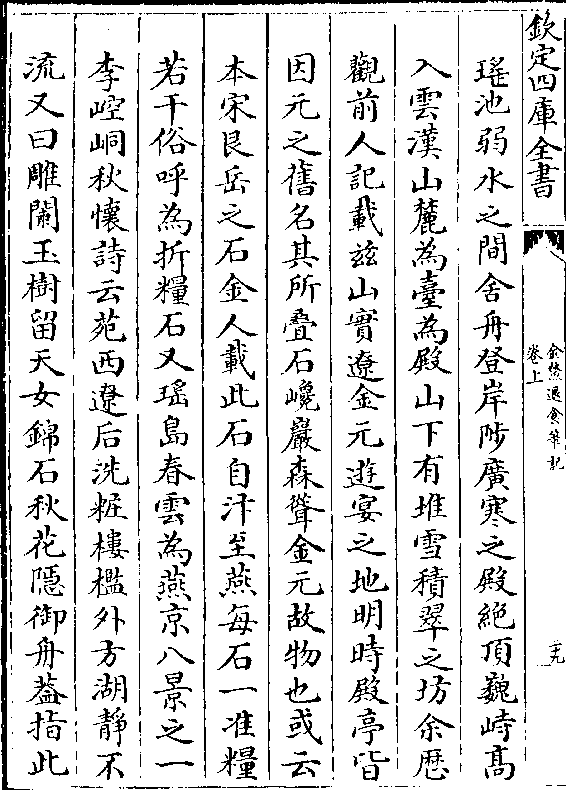 欽定四庫全書
金鰲退食筆記
卷上
十九
瑤池弱水之間舍舟登岸陟廣寒之殿絶頂巍峙髙
入雲漢山麓為臺為殿山下有堆雪積翠之坊余歴
觀前人記載兹山實遼金元遊宴之地明時殿亭皆
因元之舊名其所疊石巉巖森聳金元故物也或云
本宋艮岳之石金人載此石自汴至燕每石一准糧
若干俗呼為折糧石又瑤島春雲為燕京八景之一
李崆峒秋懷詩云苑西遼后洗粧樓檻外方湖靜不
流又曰雕闌玉樹留天女錦石秋花隠御舟葢指此